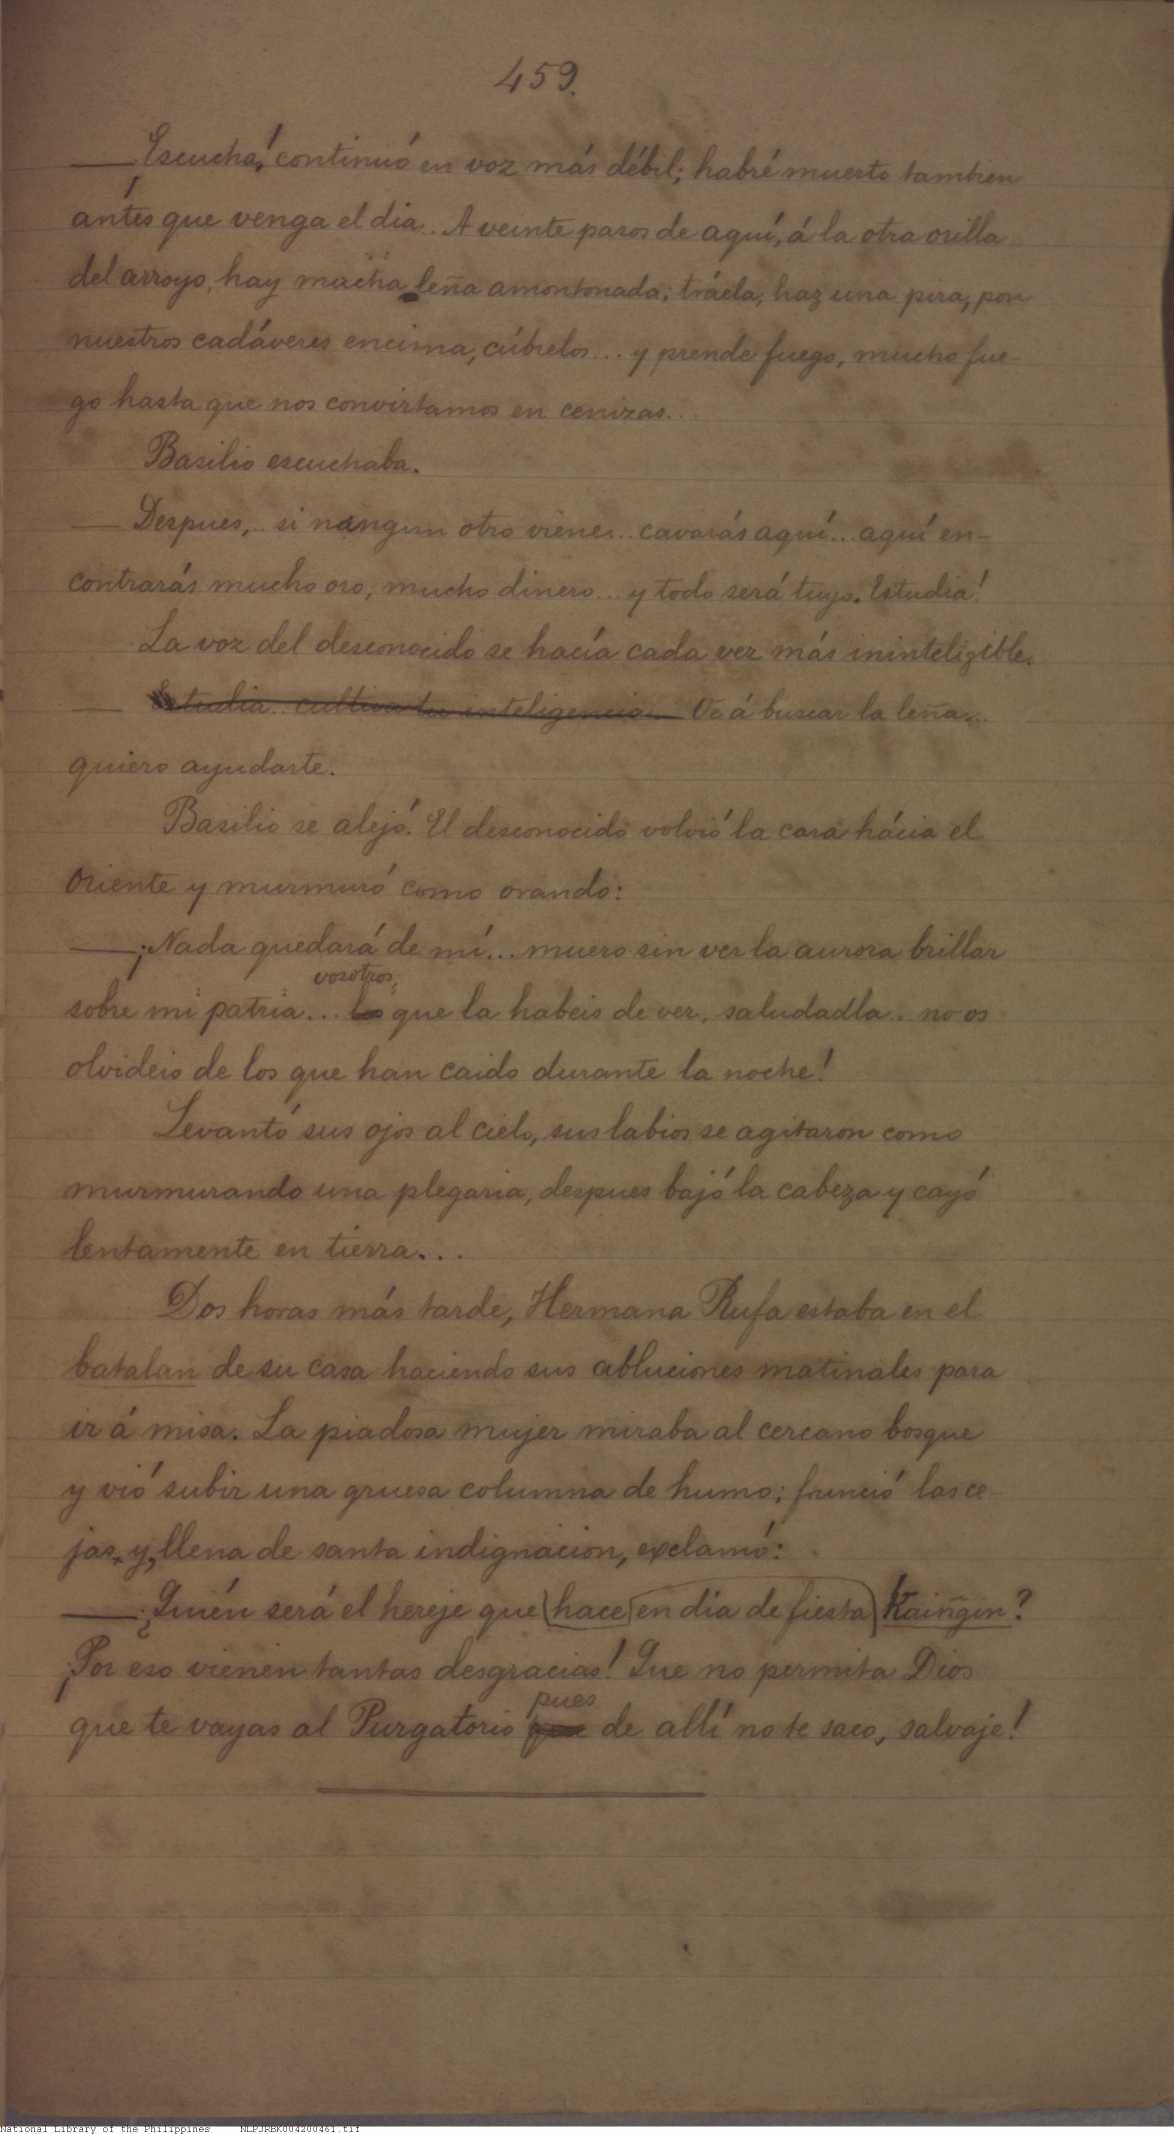 459.
— ¡Escucha! continuó en voz más débil; habré muerto tambien
ántes que venga el dia.. A veinte pasos de aquí, á la otra orilla
del arroyo, hay mucha leña amontonada; tráela, haz una pira, pon
nuestros cadáveres encima, cúbrelos... y prende fuego, mucho fue-
go hasta que nos convirtamos en cenizas...
Basilio escuchaba.
— Despues,.. si ningun otro viene... cavarás aquí... aquí en-
contrarás mucho oro, mucho dinero... y todo será tuyo. Estudia!
La voz del desconocido se hacía cada vez más ininteligible.
— Estudia.. cultiva tu inteligencia... Ve á buscar la leña...
quiero ayudarte.
Basilio se alejó. El desconocido volvió la cara hácia el
Oriente y murmuró como orando:
— ¡Nada quedará de mí... muero sin ver la aurora brillar
vosotros,
sobre mi patria... los que la habeis de ver, saludadla.. no os
olvideis de los que han caido durante la noche!
Levantó sus ojos al cielo, sus labios se agitaron como
murmurando una plegaria, despues bajó la cabeza y cayó
lentamente en tierra...
Dos horas más tarde, Hermana Rufa estaba en el
batalan de su casa haciendo sus abluciones matinales para
ir á misa. La piadosa mujer miraba al cercano bosque
y vió subir una gruesa columna de humo; frunció las ce-
jas, y, llena de santa indignacion, exclamó:
— ¿Quién será el hereje que hace en dia de fiesta Kaiñgin?
¡Por eso vienen tantas desgracias! Que no permita Dios
pues
que te vayas al Purgatorio que de allí no te saco, salvaje!
National Library of the Philippines NLPJRBK004200461.tif